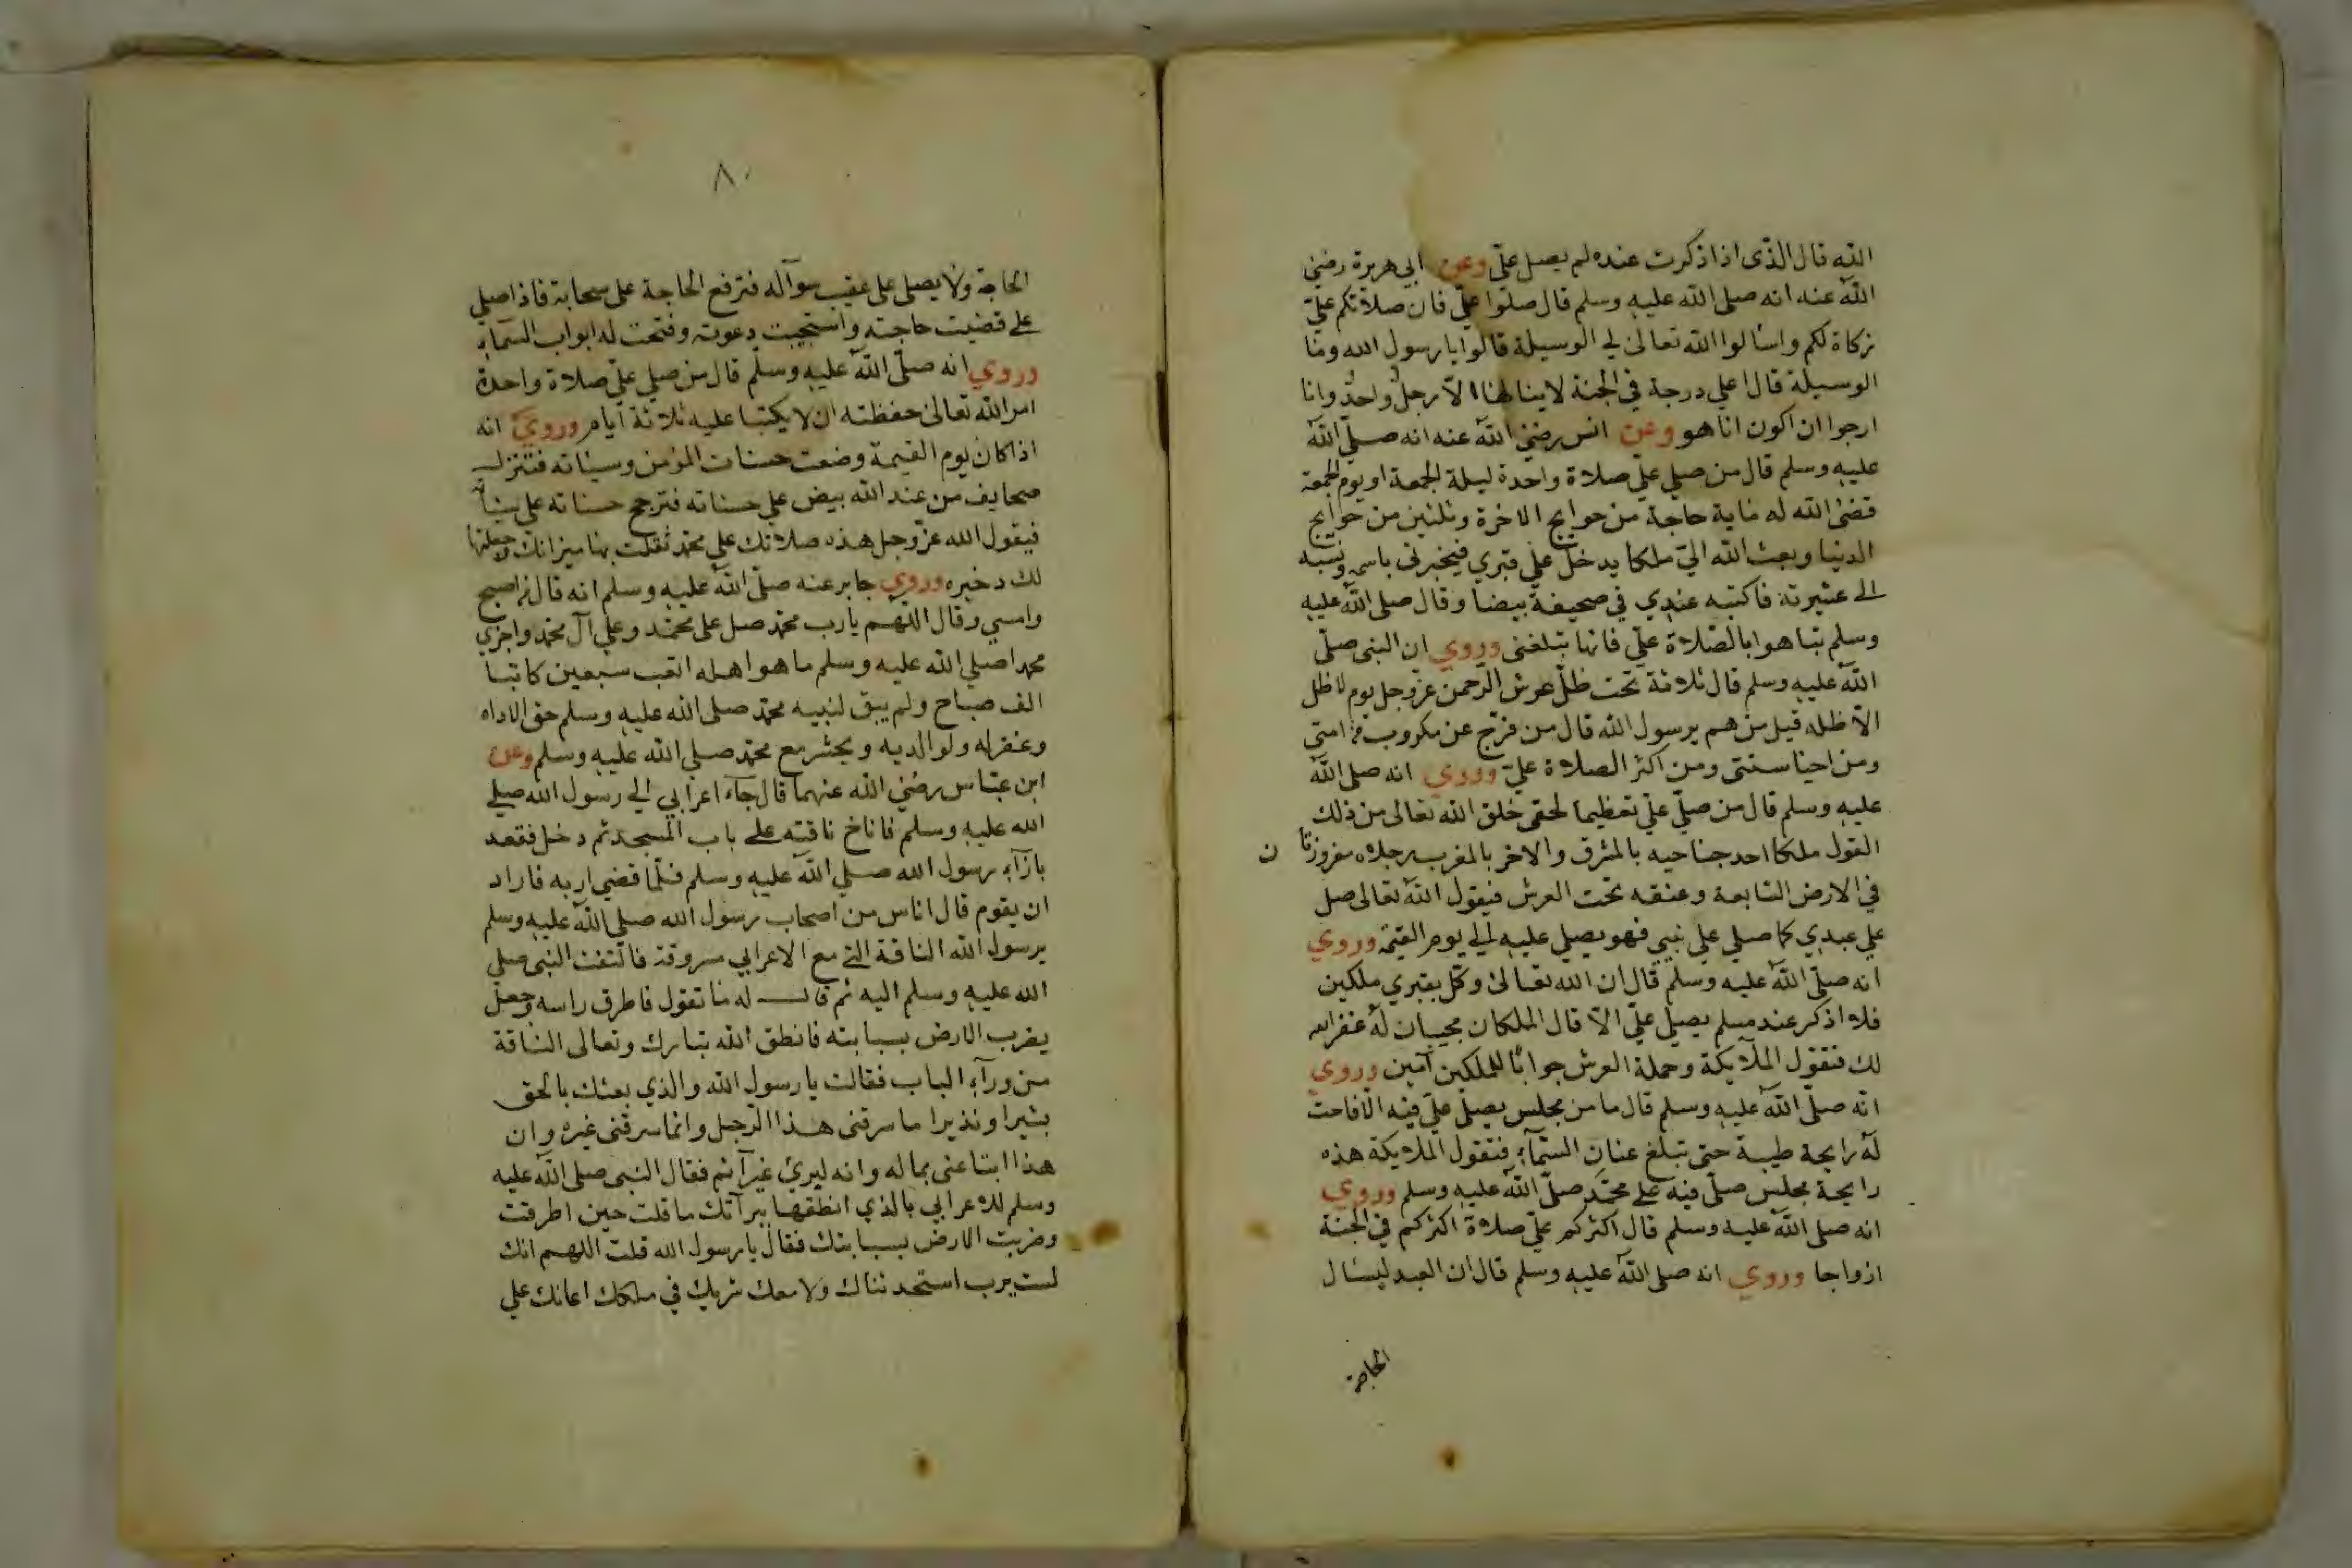 الله قال الذى اذا ذكرت عنده لم يصل علىّ وعن ابي هريرة رضي
الله عنه انه صلى الله عليه وسلم قال صلوا عليّ فان صلاتكم عليّ
زكاة لكم واسألوا الله تعالى لي الوسيلة قالوا يا رسول الله وما
الوسيلة قال اعلي درجة في الجنة لا ينالها الا رجل واحد وانا
ارجوا ان اكون انا هو وعن انس رضي الله عنه انه صلى الله
عليه وسلم قال من صلي علي صلاة واحدة ليلة الجمعة او يوم الجمعة
قضى الله له ماية حاجة من حوايج الاخرة وثلثين من حوايج
الدنيا وبعث الله اليّ ملكا يدخل علي قبري فيخبرنى باسمه ونسبه
الى عشيرته فاكتبه عندي في صحيفة بيضا وقال صلى الله عليه
وسلم تباهوا بالصلاة علي فانها تبلغنى وروي ان النبى صلى
الله عليه وسلم قال ثلاثة تحت ظل عرش الرحمن عز وجل يوم لا ظل
الا ظله قيل من هم يرسول الله قال من فرج عن مكروب من امتى
ومن احيا سنتى ومن اكثر الصلاة عليّ وروي انه صلى الله
عليه وسلم قال من صلى علي تعظيما لحقى خلق الله تعالى من ذلك
القول ملكا احد جناحيه بالمشرق والاخر بالمغرب رجلاه مغروزتا ن
في الارض السابعة وعنقه تحت العرش فيقول الله تعالى صل
علي عبدي كما صلي علي نبيي فهو يصلي عليه الي يوم القيمة وروي
انه صلى الله عليه وسلم قال ان الله تعالى وكل بقبري ملكين
فلا اذكر عند مسلم يصلي علي الا قال الملكان مجيبان له غفر الله
لك فتقول الملآيكة وحملة العرش جوابا للملكين آمين وروي
انه صلى الله عليه وسلم قال ما من مجلس يصلي علي فيه الا فاحت
له رايحة طيبة حتى تبلغ عنان السمآء فتقول الملايكة هذه
رايحة مجلس صلى فيه على محمد صلى الله عليه وسلم وروي
انه صلى الله عليه وسلم قال اكثركم علي صلاة اكثركم في الجنة
ازواجا وروي انه صلى الله عليه وسلم قال ان العبد ليسال
الحاجة
٨٠
الحاجة ولا يصلى على عقيب سوآله فترفع الحاجة على سحابة فاذا صلي
على قضيت حاجته واستجيبت دعوته وفتحت له ابواب السمآء
وروي انه صلى الله عليه وسلم قال من صلي علي صلاة واحدة
امر الله تعالى حفظته ان لا يكتبا عليه ثلاثة ايام وروي انه
اذا كان يوم القيمة وضعت حسنات المؤمن وسياته فتنزل
صحايف من عند الله بيض علي حسناته فترجح حسناته علي سيئاته
فيقول الله عز وجل هذه صلاتك علي محمد ثقلت بها ميزانك وجعلتها
لك دخيره وروي جابر عنه صلى الله عليه وسلم انه قال من اصبح
وامسي وقال اللهم يارب محمد صل على محمد وعلي آل محمد واجزي
محمدا صلي الله عليه وسلم ما هو اهله اتعب سبعين كاتبا
الف صباح ولم يبق لنبيه محمد صلى الله عليه وسلم حق الا اداه
وغفر له ولوالديه ويحشر مع محمد صلي الله عليه وسلم وعن
ابن عباس رضي الله عنهما قال جآء اعرابي الي رسول الله صلي
الله عليه وسلم فاناخ ناقته على باب المسجد ثم دخل فقعد
بازآء رسول الله صلي الله عليه وسلم فلما قضي اربه فاراد
ان يقوم قال اناس من اصحاب رسول الله صلى الله عليه وسلم
يرسول الله الناقة التى مع الاعرابي مسروقة فالتفت النبى صلي
الله عليه وسلم اليه ثم قال له ما تقول فاطرق راسه وجعل
يضرب الارض بسبابته فانطق الله تبارك وتعالى الناقة
من ورآء الباب فقالت يا رسول الله والذي بعثك بالحق
بشيرا ونذيرا ما سرقنى هذا الرجل وانما سرقنى غيره وان
هذا ابتاعنى بماله وانه لبرئ غير آثم فقال النبى صلى الله عليه
وسلم للاعرابي بالذي انطقها ببرآتك ما قلت حين اطرقت
وضربت الارض بسبابتك فقال يا رسول الله قلت اللهم انك
لست برب استحدثناك ولا معك شريك في ملكك اعانك علي